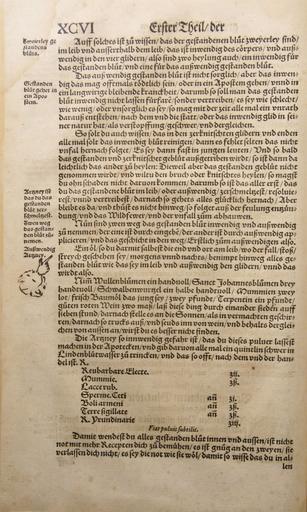 XCVI Erster Theil/ der
Zweierley ge
standens
blůts.
Auff solches ist zů wissen/ das der gestanden blůt zweyerley sind/
im leib vnd ausserthalb dem leib/ das ist inwendig des cörpers/ vnd auß-
wendig in den vier glidern/ also sind zwo heylung auch/ ein inwendig für
das gestanden blůt/ vnd eine für das außwendig gestanden blůt.
Gestanden
blůt gehet in
ein Apo-
stem.
Das außwendig gestanden blůt ist nicht sorglich/ aber das inwen-
dig das mag offtmals tödtlich sein/ oder in ein Apostem gehen/ vnnd in
ein langwirige bleibende kranckheit/ darumb so soll man das gestanden
blůt inwendig nicht lassen fürfarē/ sonder vertreiben/ es sey wie schlecht
wie wenig/ oder vnsorglich es sey/ so mag mit der zeit alle mal ein vnraht
daraus entstehen/ nach dem vnd die statt/ oder das inwendig glid in sei-
ner natur hat/ als verstopffung/ geschwer/ vnd dergleichen.
So solt du auch wissen/ das in den zerknirschten glidern vnd enden
alle mal solt das inwendig blůt reinigen/ dann es selten das nicht
vnfal hernach folget/ Es sey dann fast in jungen leuten/ Vnd so bald
das gestanden vnd zerknirschet geblůt außgetriben wirdt/ so ist dann da
liederlich das ander zů heylen/ Dieweil aber das gestanden geblůt nicht
genommen wirdt/ vnd wilt den bruch oder knitschets heylen/ so magst
du ohn schaden nicht daruon kommen/ darumb so ist das aller erst/ das
Artzney ist
das es das
gestandē blůt
zer-
schmeltzt.
du das gestanden blůt im leib/ oder außwendig/ zerschmeltzest/ resoluie-
rest/ vnnd vertreibest/ darnach so gehets alles glücklich hernach/ Aber
bleibet es da/ vnd thůst es nicht hinweg/ so folget aus der feulung entzün-
dung/ vnd das Wildfewr/ vnd der vnfall zům abhauwen.
Zwen weg
das gestan-
den blůt zů
nemen.
Nůn sind zwen weg das gestanden blůt inwendig vnd außwendig
zů nemmen/ der eine ist durch eingebē/ der ander ist durch außwendig ap-
plicieren/ vnd das geschicht in den weg/ Erstlich zům außwendigen also.
Außwendig
Artzney.
Ein öl/ so du darmit salbest die end vnd ort am leib/ wo der fall/ stoß/
streych geschehen sey/ morgens vnnd nachts/ benimpt hinweg alles ge-
standen blůt wie das sey im leib vnd außwendig den glidern/ vnnd das
wirdt also.
Nim Wullenblůmen ein handuoll/ Sanct Johannesblůmen drey
handuoll/ Schwalbenwurtzel ein halbe handuoll/ Mummien zwey
lot/ frisch Baumöl das jung sey/ zwey pfunde/ Terpentin ein pfunde/
gůten roten Wein zwo maß/ laß diese beyde durch einander sieden auff
sieben stund/ darnach stelle es an die Sonnen/ alles in vermachten geschir-
ren/ darnach so trucks auß/ vnd seuds im von wein/ vnd behalts derglei-
chen von aussen an/ wirst du es besser nicht finden.
Die Artzney so innwendig gehört ist/ das du dieses puluer lassest
machen in der Apotecken/ vnd gib daruon alle mal ein quintlein schwer in
Lindenblůtwasser zů trincken/ vnd das so offt/ nach dem vnd der han-
del ist. R.
Reubarbare Electe. ʒij.
Mummie. ʒß.
Laccerub. ʒß.
Sperme. Ceti añ ʒi.
Boli armeni añ ʒß.
Terre sigillate añ ʒß.
R. Yrundinarie ʒiij.
Fiat puluis subtilis.
Damit wendest du alles gestanden blůt innen vnd aussen/ ist nicht
not mit mehr Recepten dich zů bemühen/ es ist gnůg an den zweyen/ sie
verlassen dich nicht/ es sey die not wie sie wöl/ damit so wisse das du in al-
len